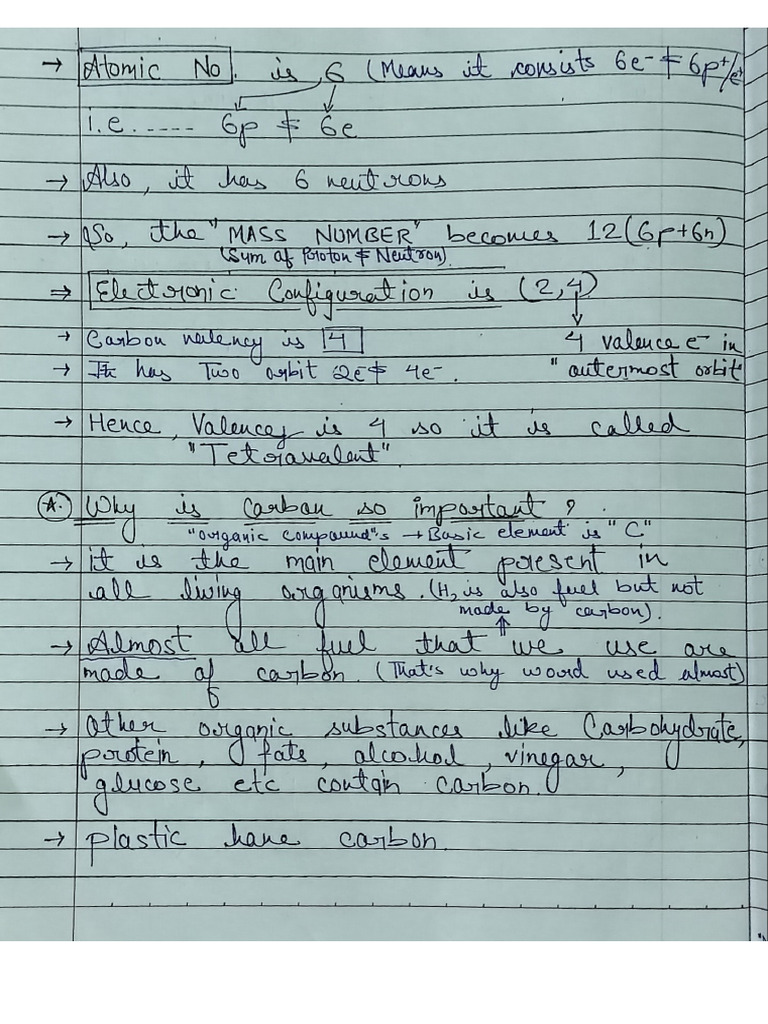 → Atomic No. is 6 (Means it consists 6e⁻ & 6p⁺/e⁺
i.e..... 6p & 6e
→ Also, it has 6 neutrons
→ So, the "MASS NUMBER" becomes 12(6p+6n)
(Sum of Proton & Neutron).
⇒ Electronic Configuration is (2,4)
→ Carbon valency is 4
4 valence e⁻ in
→ It has Two orbit 2e & 4e⁻.
"outermost orbit
→ Hence, Valency is 4 so it is called
"Tetravalent".
A. Why is carbon so important?
"organic compound"s → Basic element is "C"
→ it is the main element present in
all living organisms. (H₂ is also fuel but not
made by carbon).
→ Almost all fuel that we use are
made of carbon. (That's why word used almost)
→ Other organic substances like Carbohydrate,
protein, fats, alcohol, vinegar,
glucose etc contain carbon.
→ plastic have carbon.